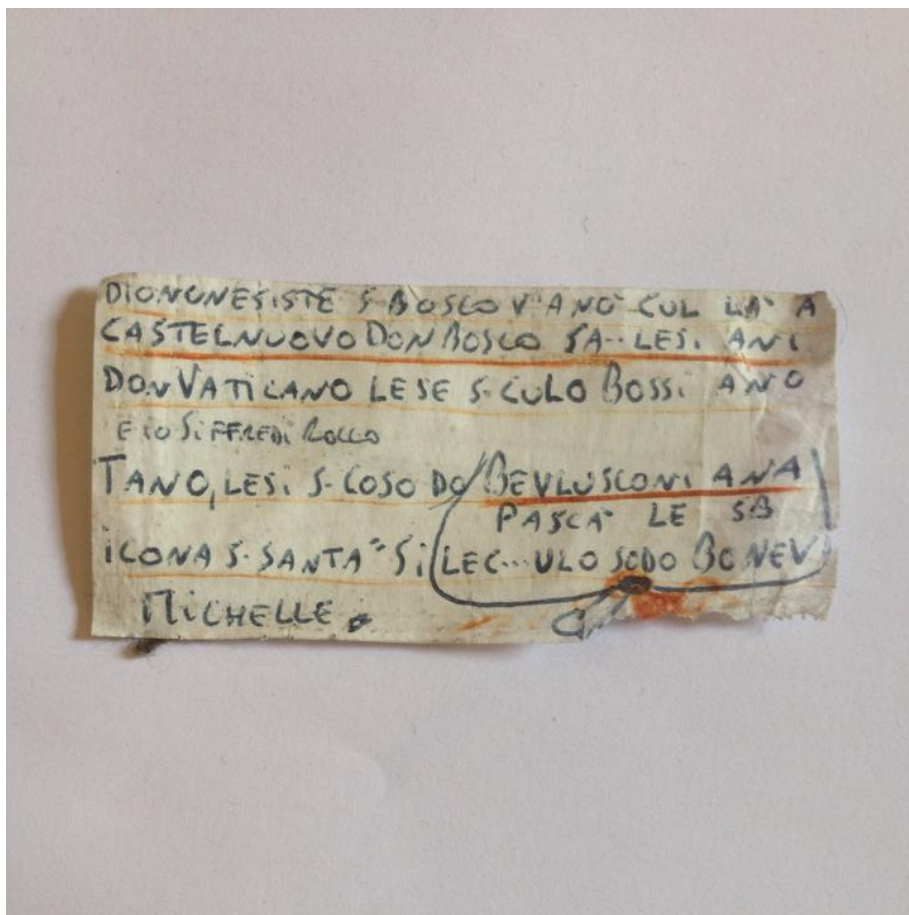 DIONONESISTE S-BOSCO V'ANO CUL LA' A
CASTELNUOVO DON BOSCO SA..LESi ANI
DON VATICANO LESE S-CULO BOSSi ANO
E IO SiFFREDi ROCCO
TANO, LESi S-COSO DO BEVLUSCONI ANA
PASCA' LE SB
iCONA S-SANTA" Si LEC...ULO SODO BONEV
MiCHELLE.